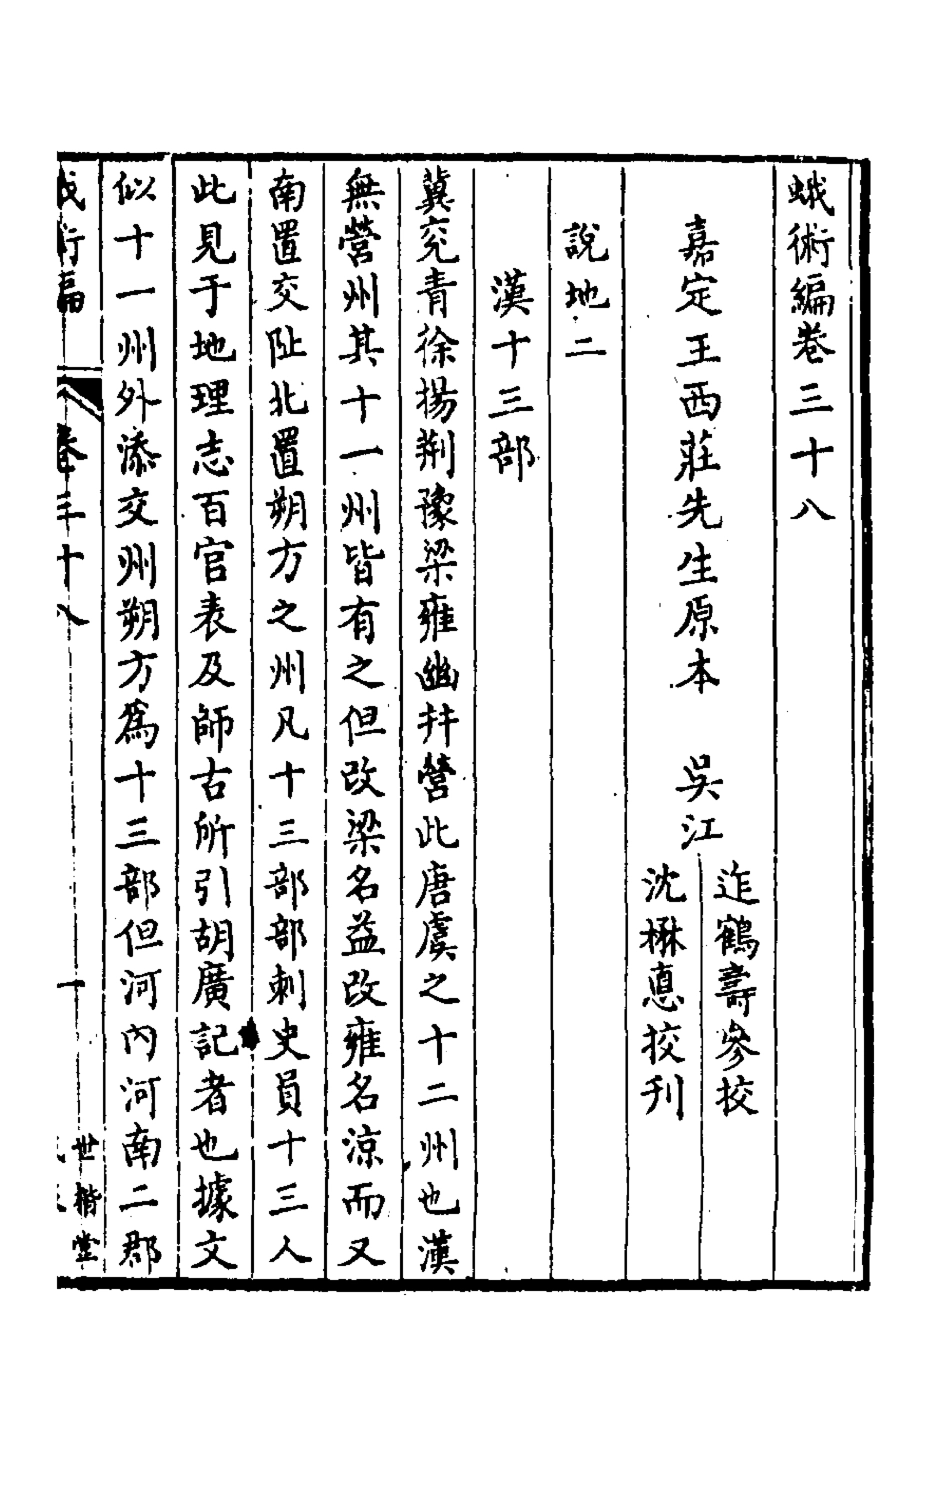 蛾術編卷三十八
嘉定王西莊先生原本　吳江
迮鶴壽參挍
沈楙惪挍刊
說地二
漢十三部
冀兖青徐揚荆豫梁雍幽幷營此唐虞之十二州也漢
無營州其十一州皆有之但改梁名益改雍名涼而又
南置交阯北置朔方之州凡十三部部刺史員十三人
此見于地理志百官表及師古所引胡廣記者也據文
似十一州外添交州朔方爲十三部但河內河南二郡
蛾術編　卷三十八　一　世楷堂